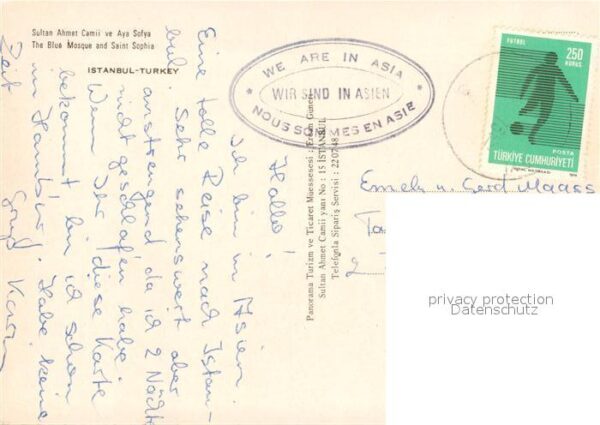 Sultan Ahmet Camii ve Aya Sofya
The Blue Mosque and Saint Sophia
ISTANBUL-TURKEY
WE ARE IN ASIA
WIR SIND IN ASIEN
NOUS SOMMES EN ASIE
FUTBOL
250
KURUŞ
POSTA
TÜRKİYE CUMHURİYETİ
Hallo!
Ich bin in Asien.
Eine tolle Reise nach Istan-
bul. Sehr sehenswert aber
anstrengend, da ich 2 Nächte
nicht geschlafen habe.
Wenn Ihr diese Karte
bekommt bin ich schon
in Hamburg. Habe keine
Zeit
Gruß
Panorama Turizm ve Ticaret Muessesesi : Ersan
Sultan Ahmet Camii yanı No : 15 ISTANBUL
Telefonla Sipariş Servisi : 220748
Emely u. Gerd Maass
privacy protection
Datenschutz